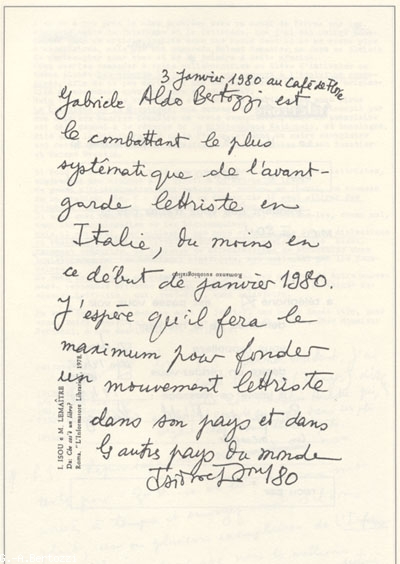 3 Janvier 1980 au Café de Flore
Gabriele Aldo Bertozzi est
le combattant le plus
systématique de l'avant-
garde lettriste en
Italie, du moins en
ce début de janvier 1980.
J'espère qu'il fera le
maximum pour fonder
un mouvement lettriste
dans son pays et dans
les autres pays du monde
Isidore Isou 80
I. ISOU e M. LEMAÎTRE
Roma, "L'Informatore Librario", 1978